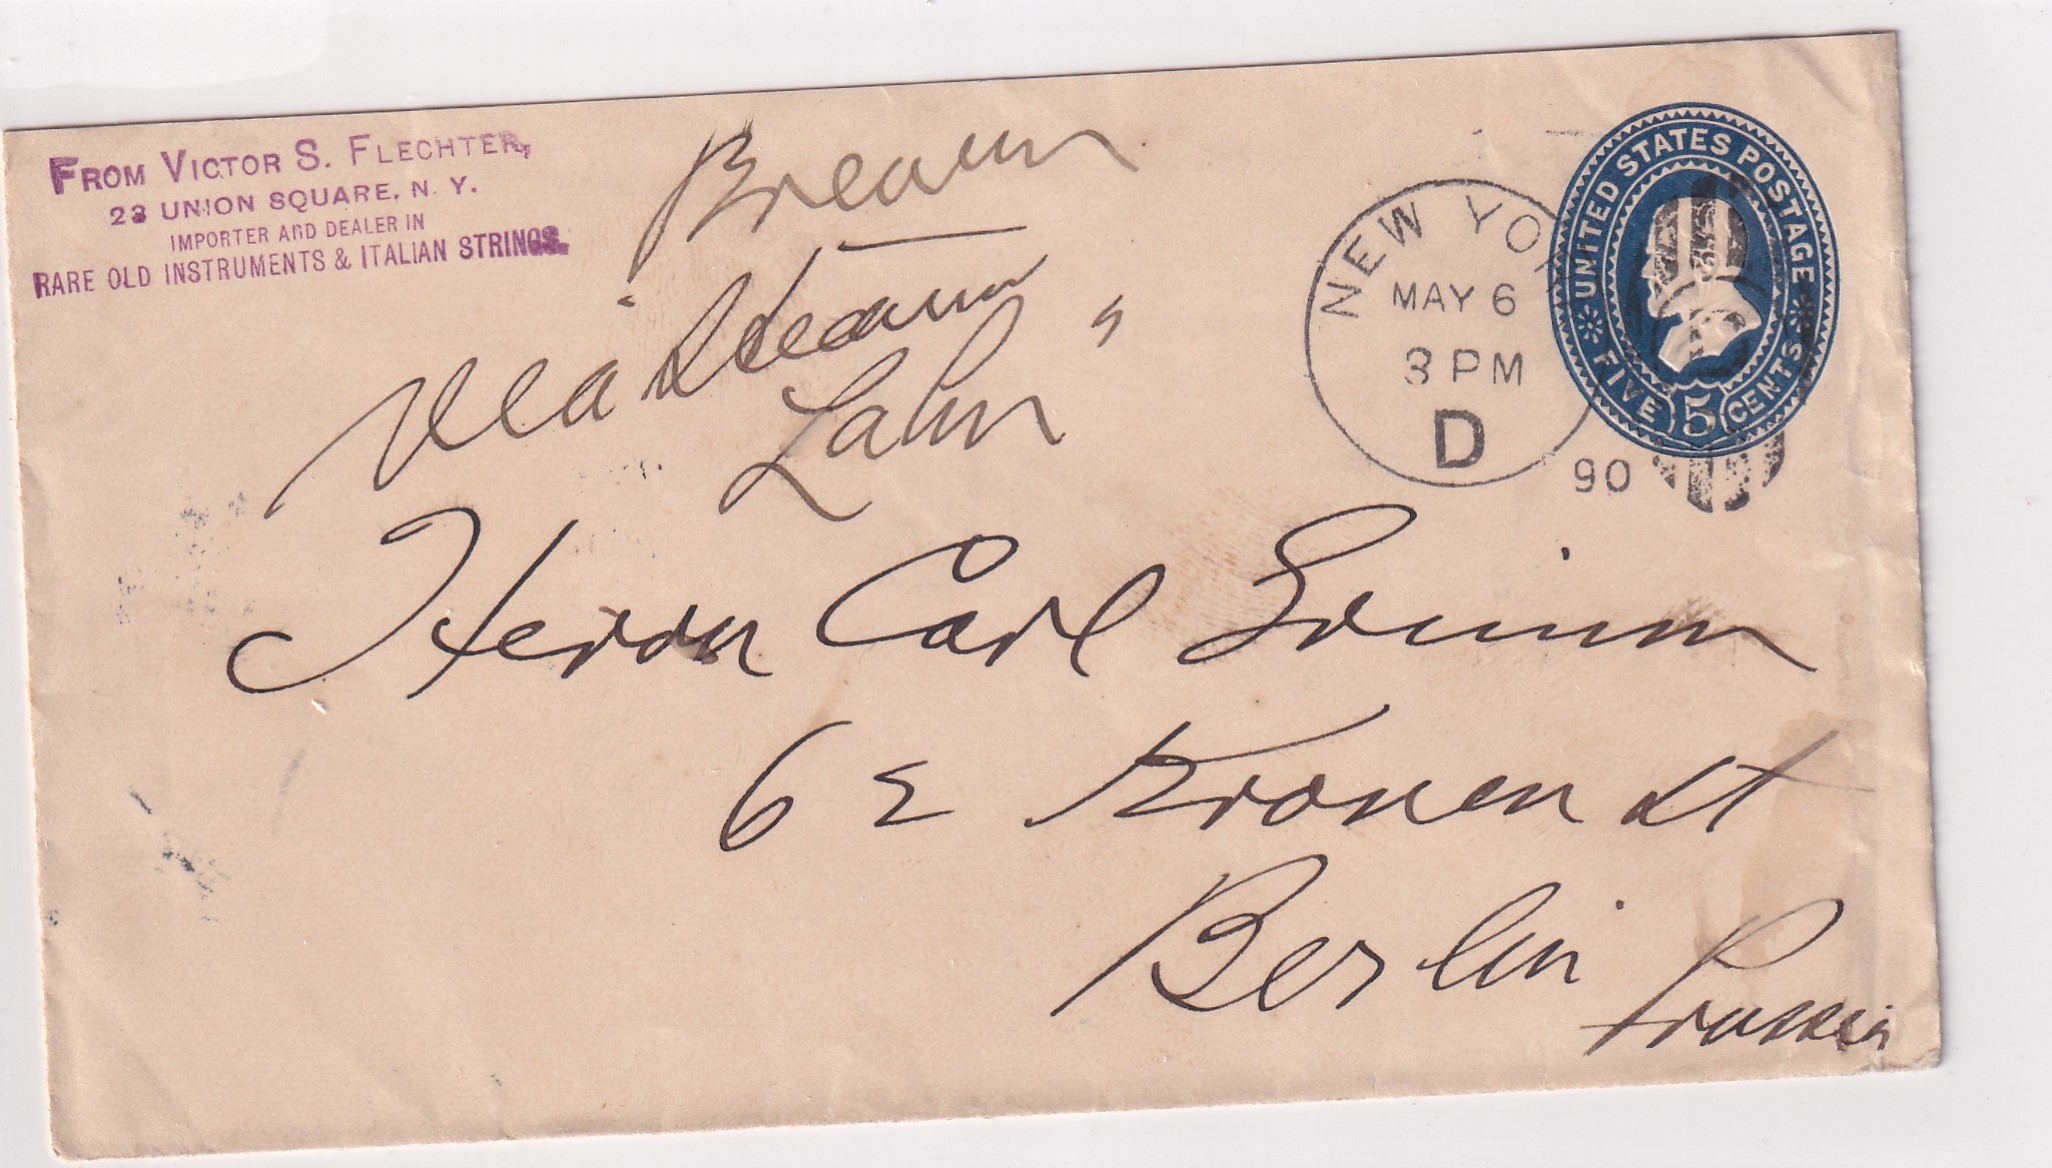 FROM VICTOR S. FLECHTER,
23 UNION SQUARE, N. Y.
IMPORTER AND DEALER IN
RARE OLD INSTRUMENTS & ITALIAN STRINGS.
via Steamer
"Lahn"
NEW YORK
MAY 6
3 PM
D
90
UNITED STATES POSTAGE
FIVE 5 CENTS
Herrn Carl Grimm
Kronen St
Berlin
Prussia